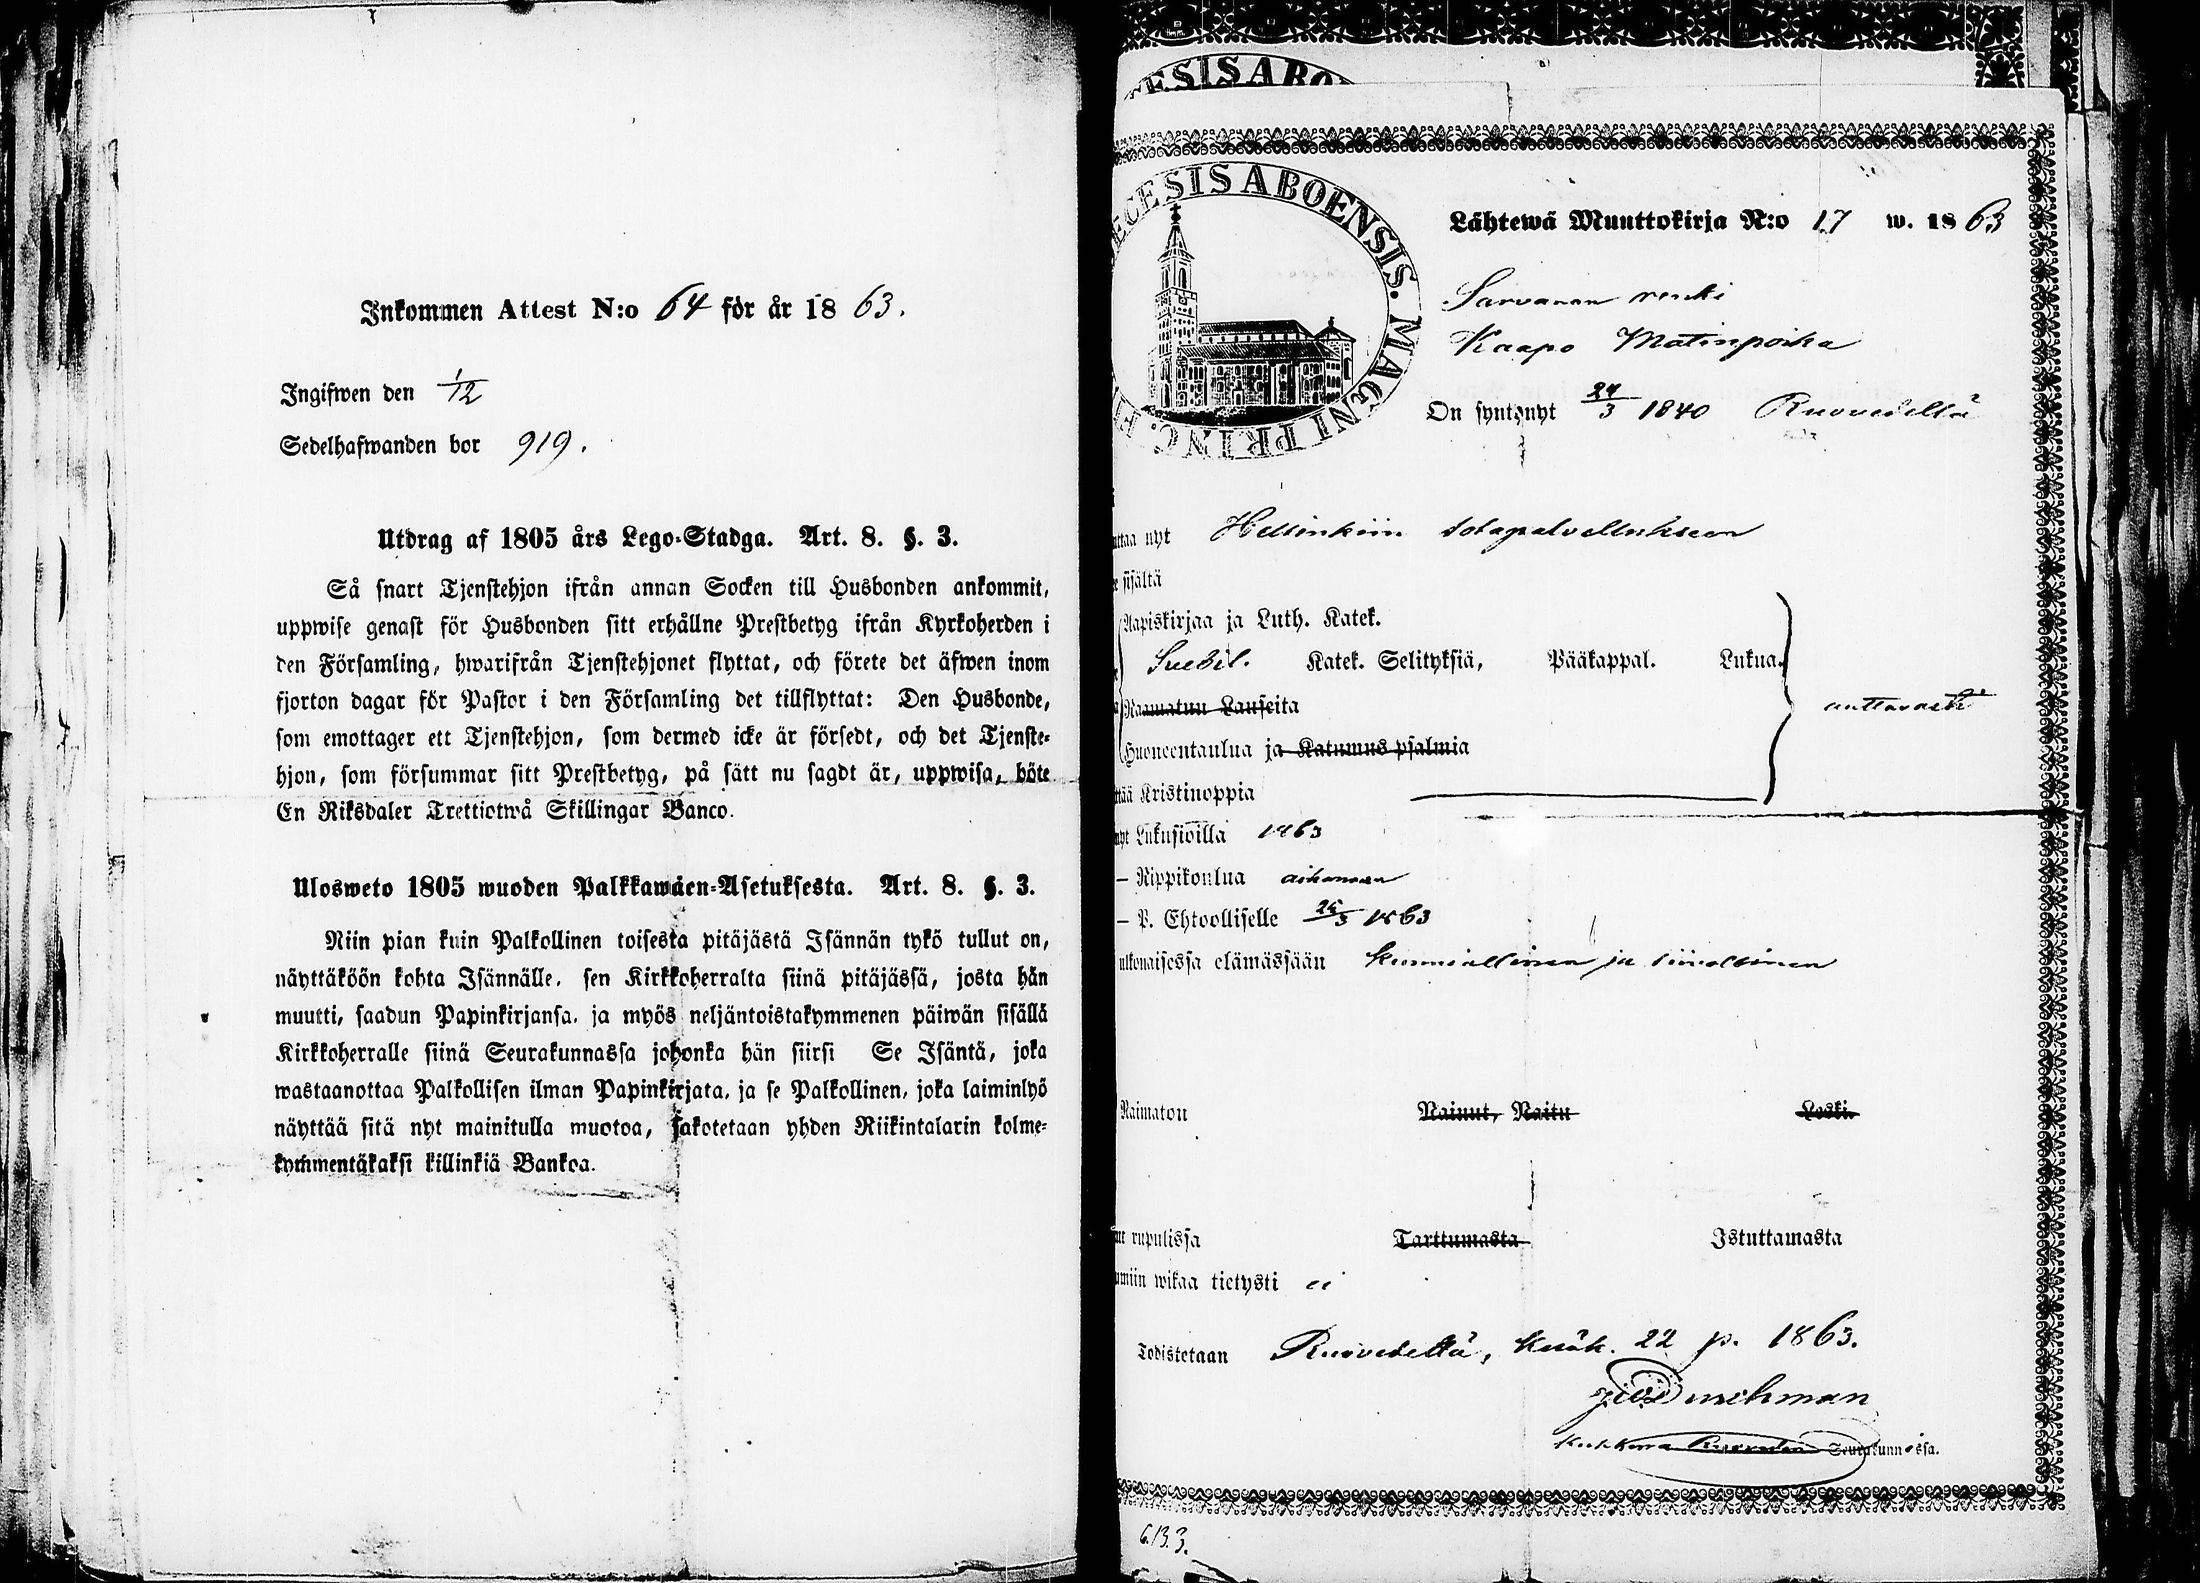 Inkommen Attest N:o 64 för år 1863.
Ingifwen den 1/12
Sedelhafwanden bor 919.
Utdrag af 1805 års Lego-Stadga. Art. 8. §. 3.
Så snart Tjenstehjon ifrån annan Socken till Husbonden ankommit,
uppwise genast för Husbonden sitt erhållne Prestbetyg ifrån Kyrkoherden i
den Församling, hwarifrån Tjenstehjonet flyttat, och förete det äfwen inom
fjorton dagar för Pastor i den Församling det tillflyttat: Den Husbonde,
som emottager ett Tjenstehjon, som dermed icke är försedt, och det Tjenste-
hjon, som försummar sitt Prestbetyg, på sätt nu sagdt är, uppwisa, böte
En Riksdaler Trettiotwå Skillingar Banco.
Ulosweto 1805 wuoden Palkkawäen-Asetuksesta. Art. 8. §. 3.
Niin pian kuin Palkollinen toisesta pitäjästä Isännän tykö tullut on,
näyttäköön kohta Isännälle, sen Kirkkoherralta siinä pitäjässä, josta hän
muutti, saadun Papinkirjansa, ja myös neljäntoistakymmenen päiwän sisällä
Kirkkoherralle siinä Seurakunnassa johonka hän siirsi Se Isäntä, joka
wastaanottaa Palkollisen ilman Papinkirjata, ja se Palkollinen, joka laiminlyö
näyttää sitä nyt mainitulla muotoa, sakotetaan yhden Riikintalarin kolme-
kymmentäkaksi killinkiä Bankoa.
ESIS ABO
ECESIS ABOENSIS. MAGNI PRINC. F
Lähtewä Muuttokirja N:o 17 w. 1863
renki
Kaapo Matinpoika
On syntynyt 24/3 1840 Ruovedellä
uttaa nyt Helsinkiin sotapalvellukseen
e sisältä
Aapiskirjaa ja Luth. Katek.
Svebil. Katek. Selityksiä, Pääkappal. Lukua.
Raamatun Lauseita auttavasti
Huoneentaulua ja Katumus psalmia
ttää Kristinoppia
nyt Lukusioilla 1863
— Rippikoulua aikanaan
— P. Ehtoolliselle 25/3 1863
ulkonaisessa elämässään kunniallinen ja siivollinen
Naimaton Nainut, Naitu Leski.
ut rupulissa Tarttumasta Istuttamasta
umiin wikaa tietysti ei
Todistetaan Ruovedeltä, Kesäk. 22 p. 1863.
Seurakunnassa.
6.13.3.